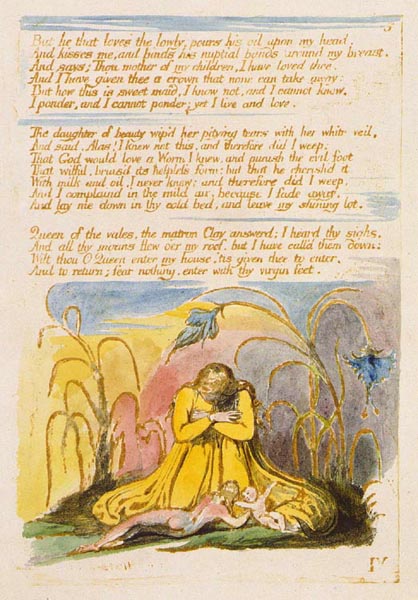 5
But he that loves the lowly, pours his oil upon my head.
And kisses me, and binds his nuptial bands around my breast.
And says; Thou mother of my children, I have loved thee.
And I have given thee a crown that none can take away:
But how this is sweet maid, I know not, and I cannot know.
I ponder, and I cannot ponder; yet I live and love.
The daughter of beauty wip'd her pitying tears with her white veil,
And said. Alas! I knew not this, and therefore did I weep:
That God would love a Worm I knew, and punish the evil foot
That wilful, bruis'd its helpless form: but that he cherish'd it
With milk and oil, I never knew; and therefore did I weep.
And I complaind in the mild air, because I fade away,
And lay me down in thy cold bed, and leave my shining lot.
Queen of the vales, the matron Clay answerd; I heard thy sighs.
And all thy moans flew o'er my roof, but I have call'd them down:
Wilt thou O Queen enter my house, 'tis given thee to enter,
And to return; fear nothing, enter with thy virgin feet.
IV